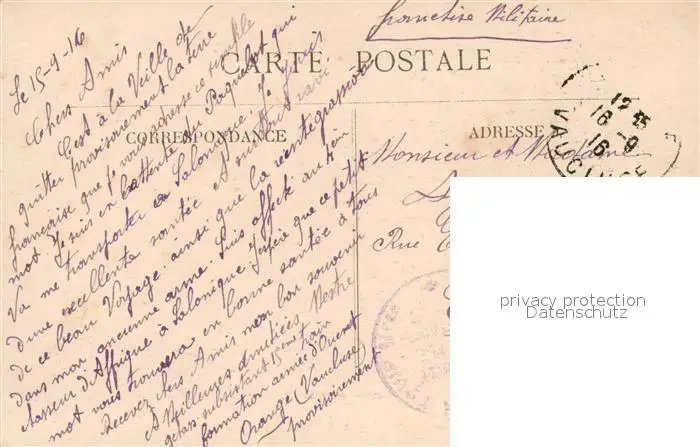 franchise Militaire
CARTE POSTALE
CORRESPONDANCE
ADRESSE
16-9
16
VAUCLUSE
Le 15-9-16
Chers Amis
C'est à la Veille de
quitter provisoirement la terre
française que je vous adresse ce simple
mot. Je suis en attente du Paquebot qui
Va me transporter à Salonique. Je jouis
d'une excellente santée et suis tout ravi
de ce beau Voyage. ainsi que la réintégration
dans mon ancienne arme. Suis affecté au
chasseur d'Affrique à Salonique. J'espère que ce petit
mot vous trouvera en bonne santée à tous
Recevez chers Amis mon bon souvenir
et Meilleures amitiées. Vestre
subsistant 15ème train
formation armée d'Orient
Orange Vaucluse
provisoirement
Monsieur et Madame
Rue
privacy protection
Datenschutz